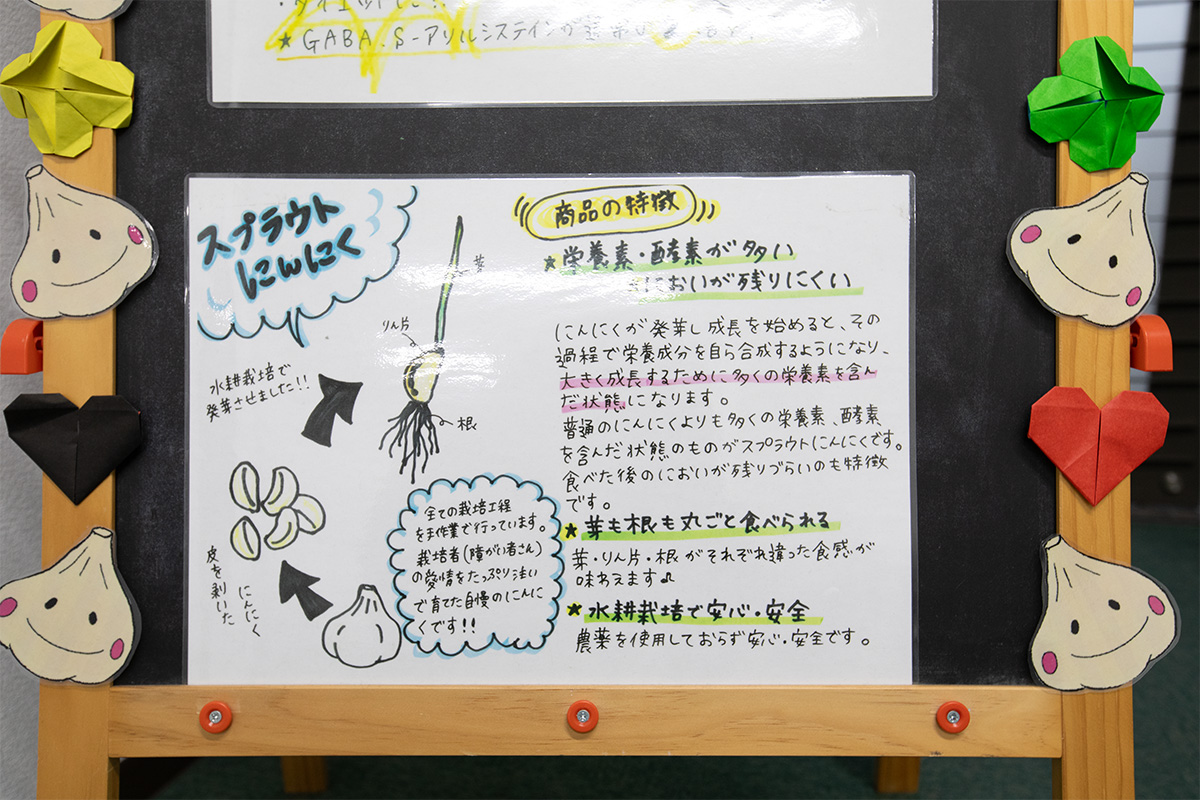 ★GABA、S-アリルシステインが
スプラウト
にんにく
商品の特徴
★栄養素・酵素が多い
においが残りにくい
芽
りん片
根
水耕栽培で
発芽させました!!
にんにくが発芽し成長を始めると、その
過程で栄養成分を自ら合成するようになり、
大きく成長するために多くの栄養素を含ん
だ状態になります。
普通のにんにくよりも多くの栄養素、酵素
を含んだ状態のものがスプラウトにんにくです。
食べた後のにおいが残りづらいのも特徴
です。
★芽も根も丸ごと食べられる
芽・りん片・根がそれぞれ違った食感が
味わえます♪
★水耕栽培で安心・安全
農薬を使用しておらず安心・安全です。
全ての栽培工程
を手作業で行っています。
栽培者(障がい者さん)
の愛情をたっぷり注い
で育てた自慢のにんに
くです!!
皮を剥いた
にんにく